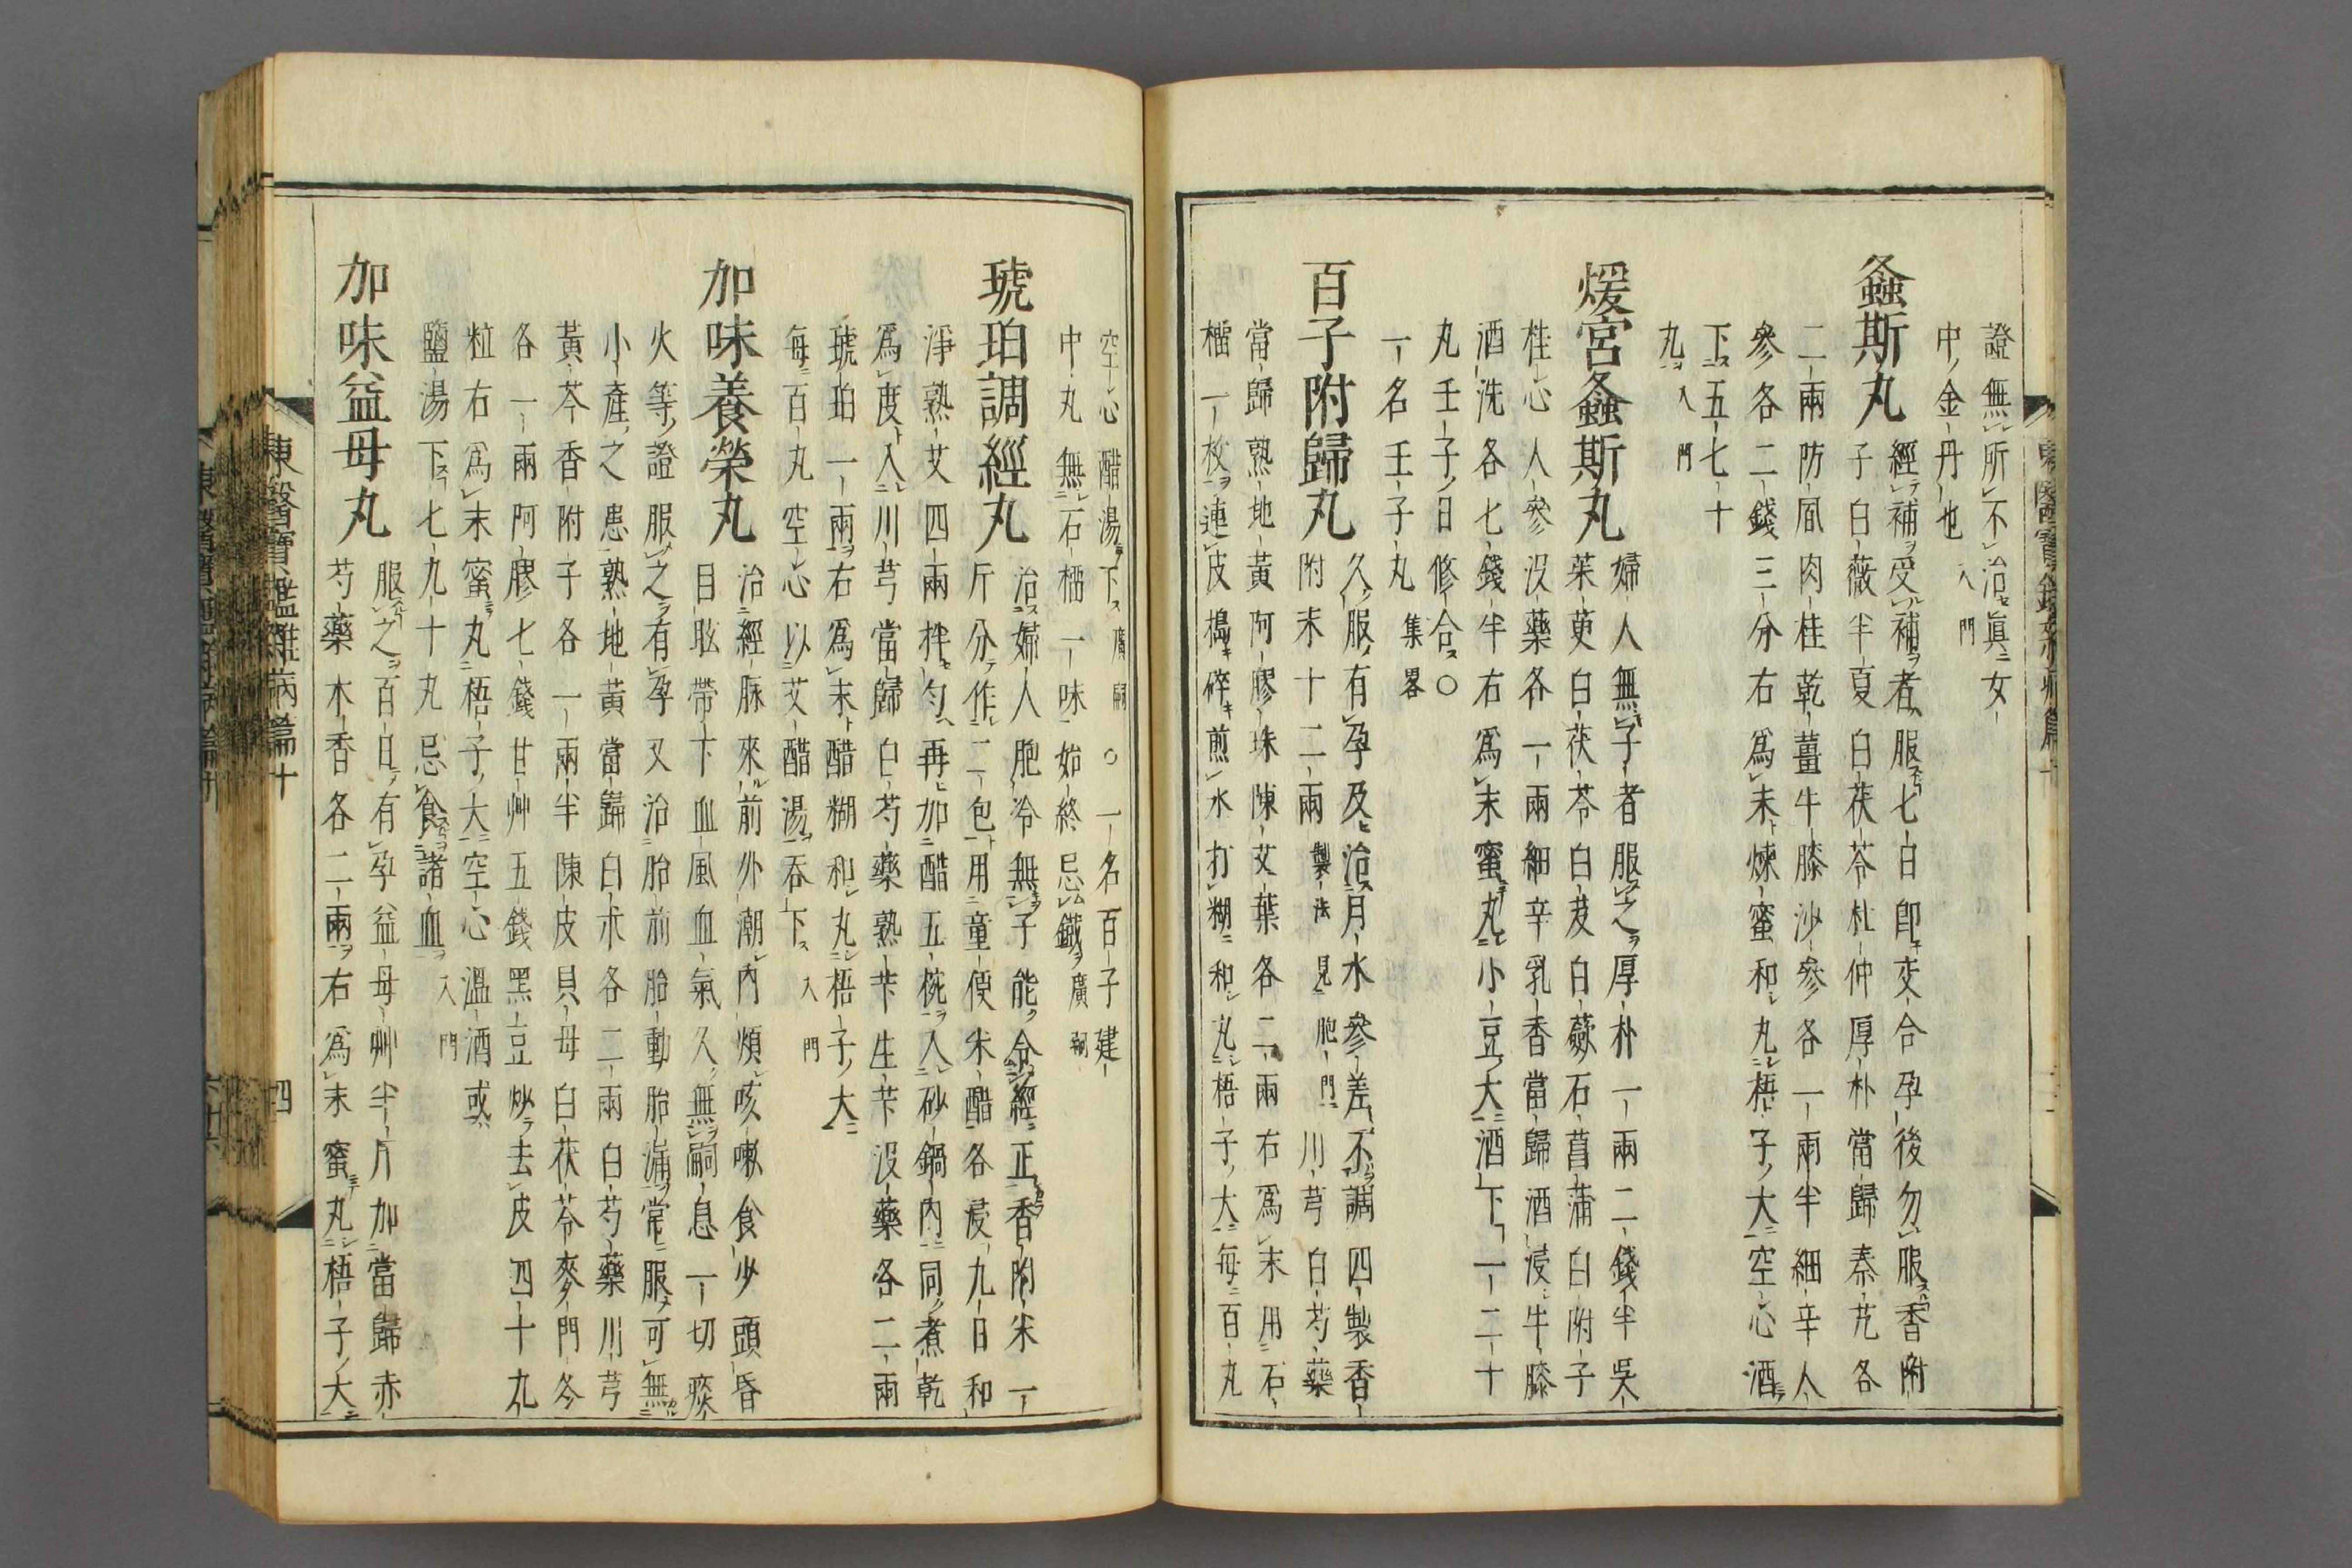 證無所不治眞女
中金丹也入門
螽斯丸
經補受補者服七日卽交合孕後勿服香附
子白薇半夏白茯苓杜仲厚朴當歸秦艽各
二兩防風肉桂乾薑牛膝沙參各一兩半細辛人
參各二錢三分右爲末煉蜜和丸梧子大空心酒
下五七十
丸入門
煖宮螽斯丸
婦人無子者服之厚朴一兩二錢半吳
茱萸白茯苓白芨白蘞石菖蒲白附子
桂心人參沒藥各一兩細辛乳香當歸酒浸牛膝
酒洗各七錢半右爲末蜜丸小豆大酒下一二十
丸壬子日修合○
一名壬子丸集畧
百子附歸丸
久服有孕及治月水參差不調四製香
附末十二兩製法見胞門川芎白芍藥
當歸熟地黃阿膠珠陳艾葉各二兩右爲末用石
榴一枚連皮搗碎煎水打糊和丸梧子大每百丸
空心醋湯下廣嗣○一名百子建
中丸無石榴一味始終忌鐵廣嗣
琥珀調經丸
治婦人胞冷無子能令經正香附米一
斤分作二包用童便米醋各浸九日和
淨熟艾四兩拌勻再加醋五椀入砂鍋內同煮乾
爲度入川芎當歸白芍藥熟芐生芐沒藥各二兩
琥珀一兩右爲末醋糊和丸梧子大
每百丸空心以艾醋湯吞下入門
加味養榮丸
治經脉來前外潮內煩咳嗽食少頭昏
目眩帶下血風血氣久無嗣息一切痰
火等證服之有孕又治胎前胎動胎漏常服可無
小產之患熟地黃當歸白朮各二兩白芍藥川芎
黃芩香附子各一兩半陳皮貝母白茯苓麥門冬
各一兩阿膠七錢甘艸五錢黑豆炒去皮四十九
粒右爲末蜜丸梧子大空心溫酒或
鹽湯下七九十丸忌食諸血入門
加味益母丸
服之百日有孕益母艸半斤加當歸赤
芍藥木香各二兩右爲末蜜丸梧子大
東醫寶鑑雜病篇十
四